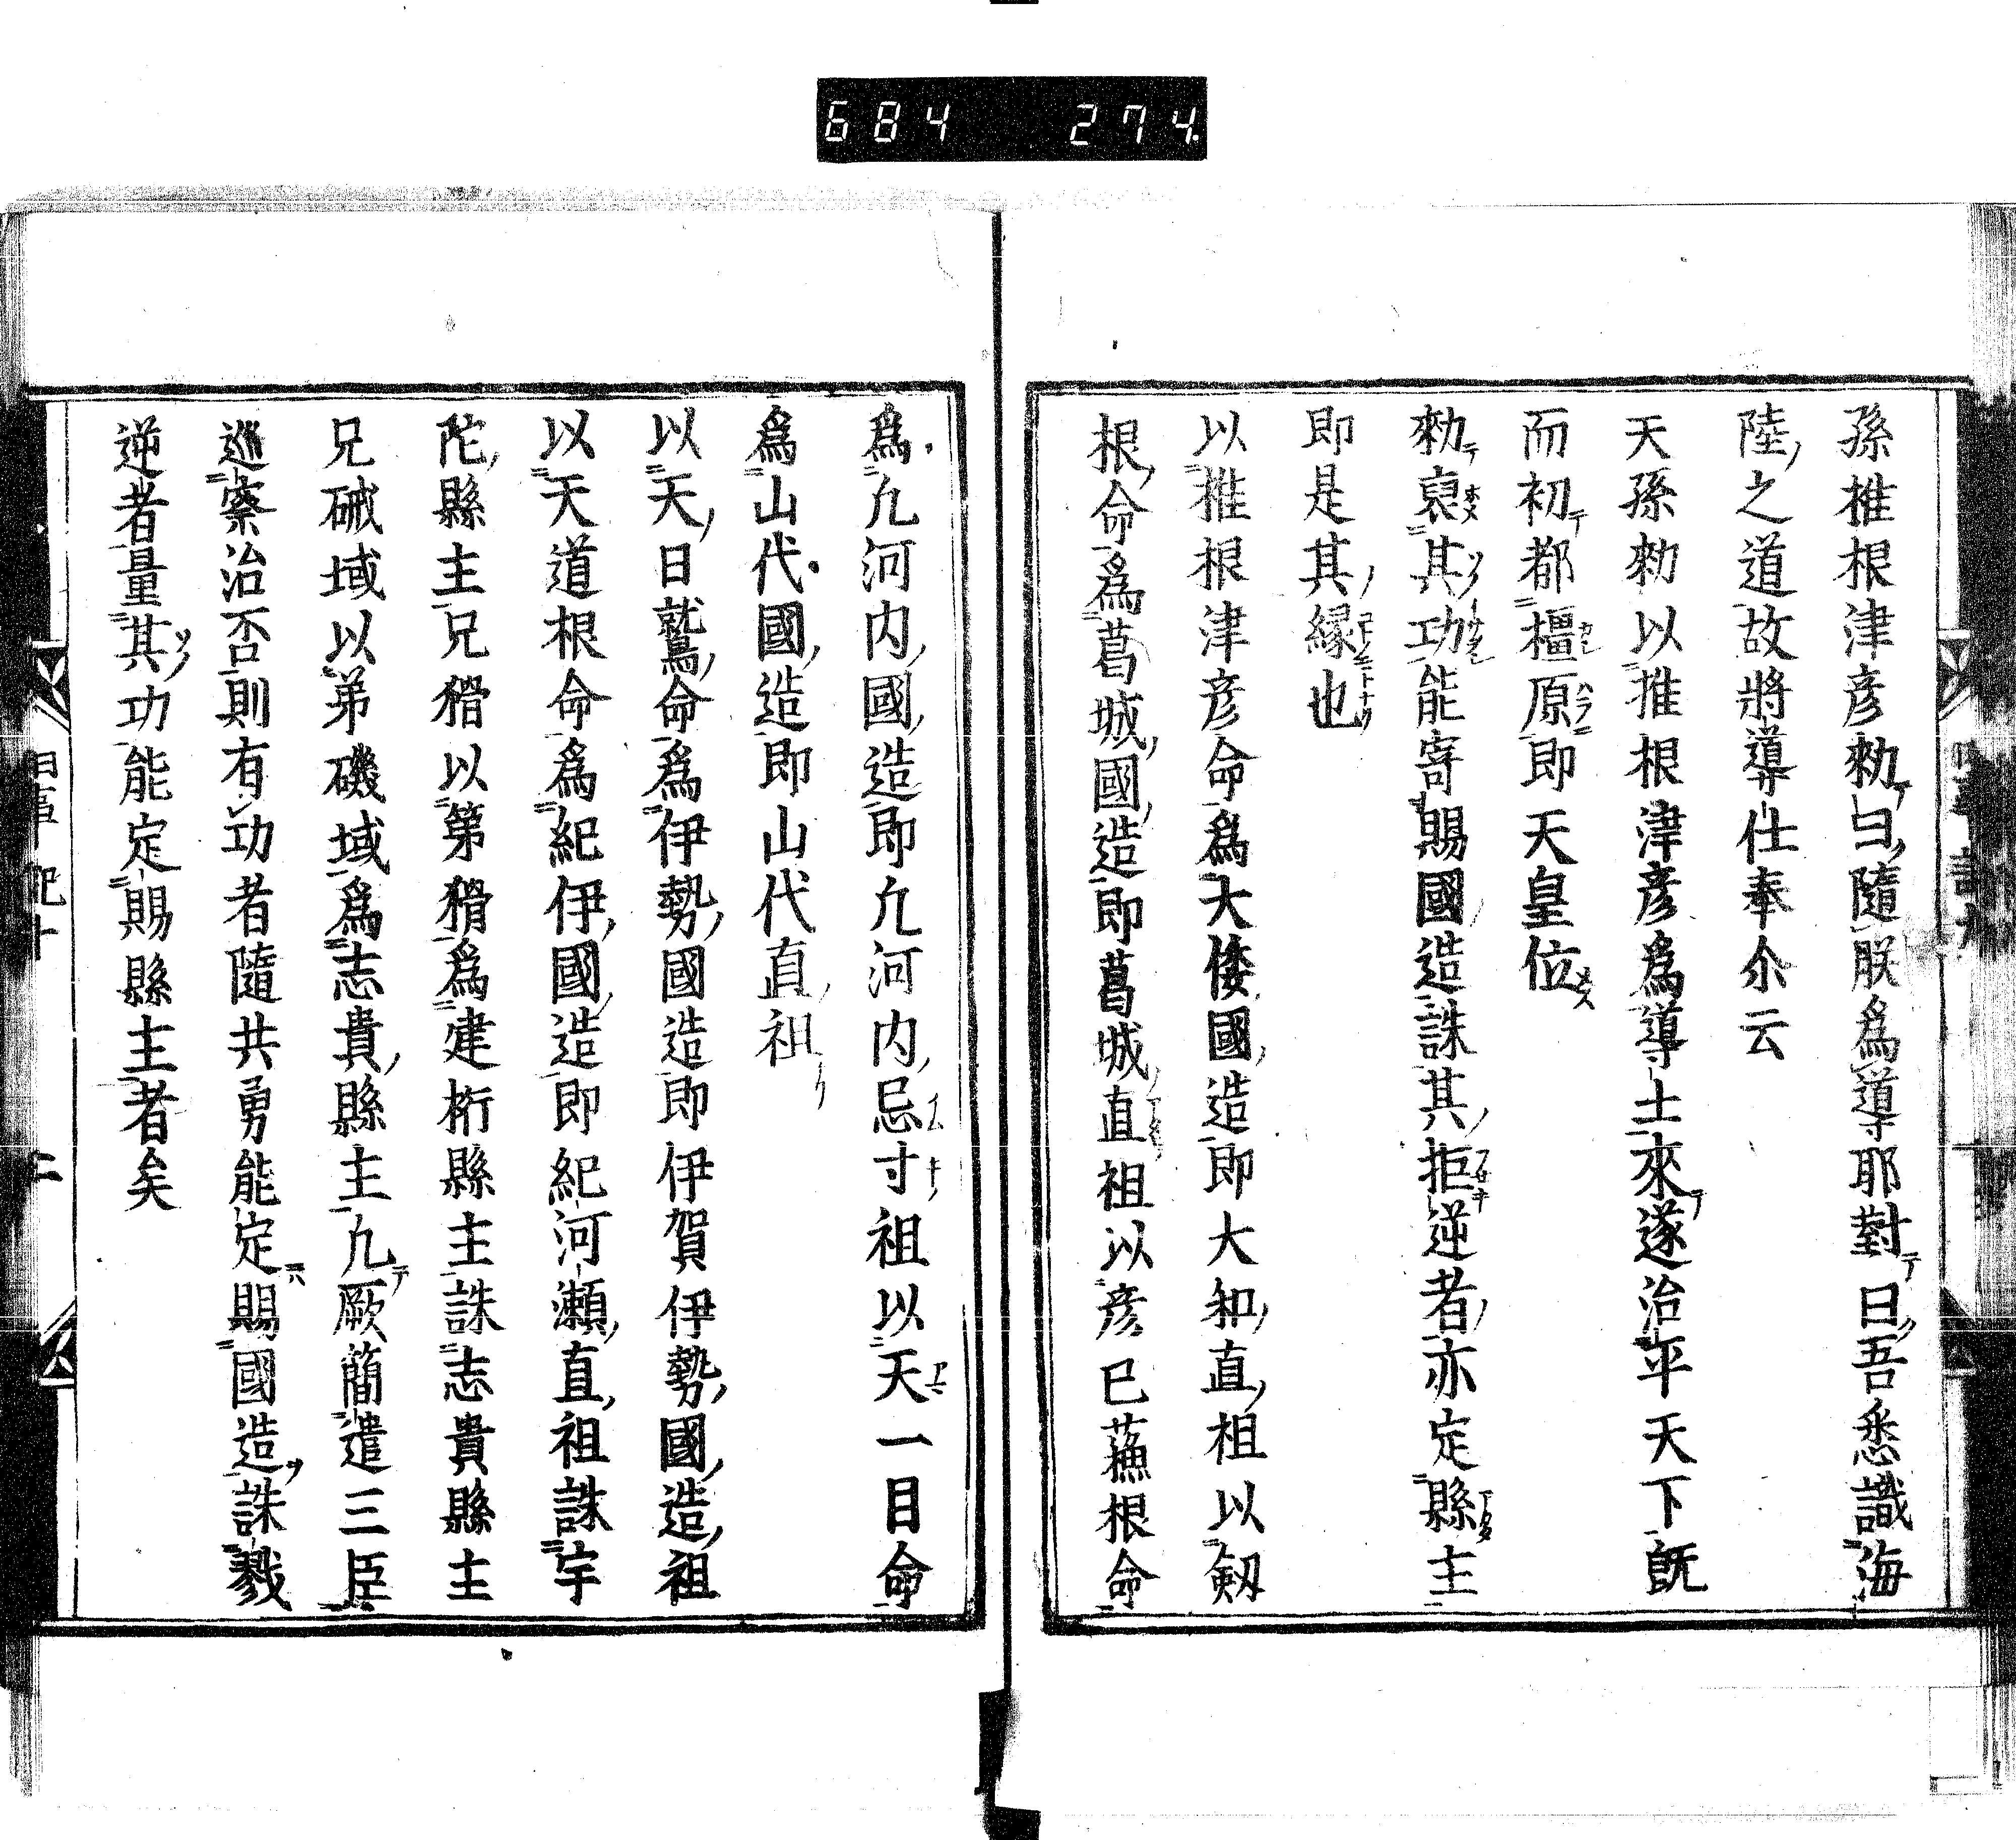 684 274
孫椎根津彦勑曰隨朕爲導耶對曰吾悉識海
陸之道故將導仕奉尒云
天孫勑以推根津彦爲導士來遂治平天下既
而初都橿原即天皇位
勑裒其功能寄賜國造誅其拒逆者亦定縣主
即是其縁也
以推根津彦命爲大倭國造即大和直祖以剱
根命爲葛城國造即葛城直祖以彦已蘓根命
爲凢河内國造即凢河内忌寸祖以天一目命
爲山代國造即山代直祖
以天日鷲命爲伊勢國造即伊賀伊勢國造祖
以天道根命爲紀伊國造即紀河瀬直祖誅宇
陀縣主兄猾以第猾爲建桁縣主誅志貴縣主
兄磩域以弟磯域爲志貴縣主凢厥簡遣三臣
巡察治否則有功者隨共勇能定賜國造誅戮
逆者量其功能定賜縣主者矣